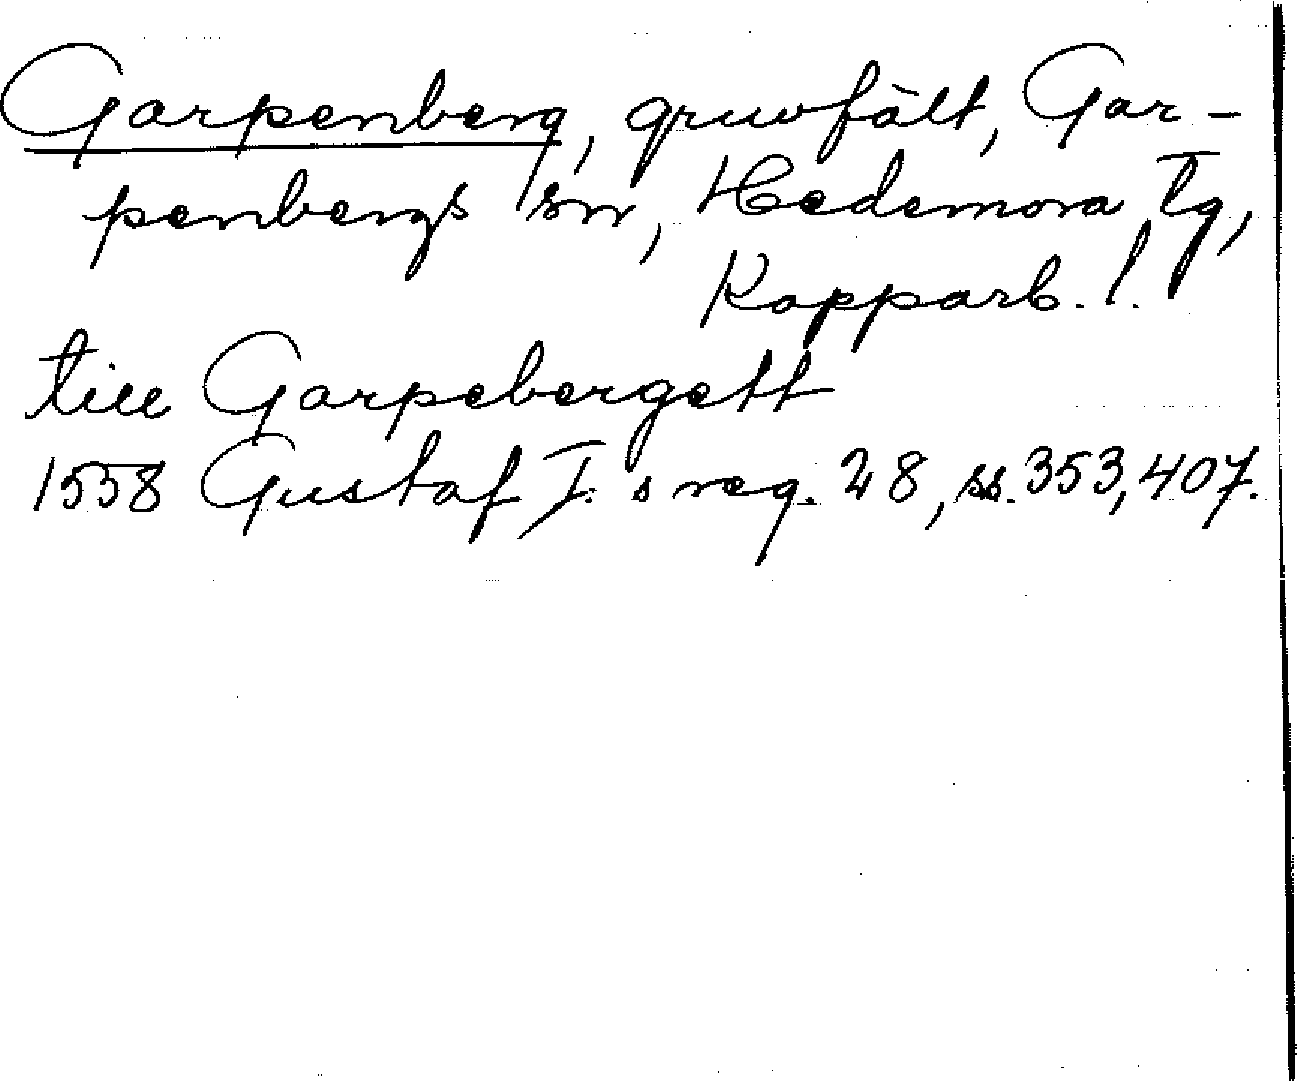 Garpenberg, gruvfält, Gar-
penbergs sn, Hedemora tg,
Kopparb. l.
till Garpebergett
1558 Gustaf I. s reg. 28, ss. 353, 407.